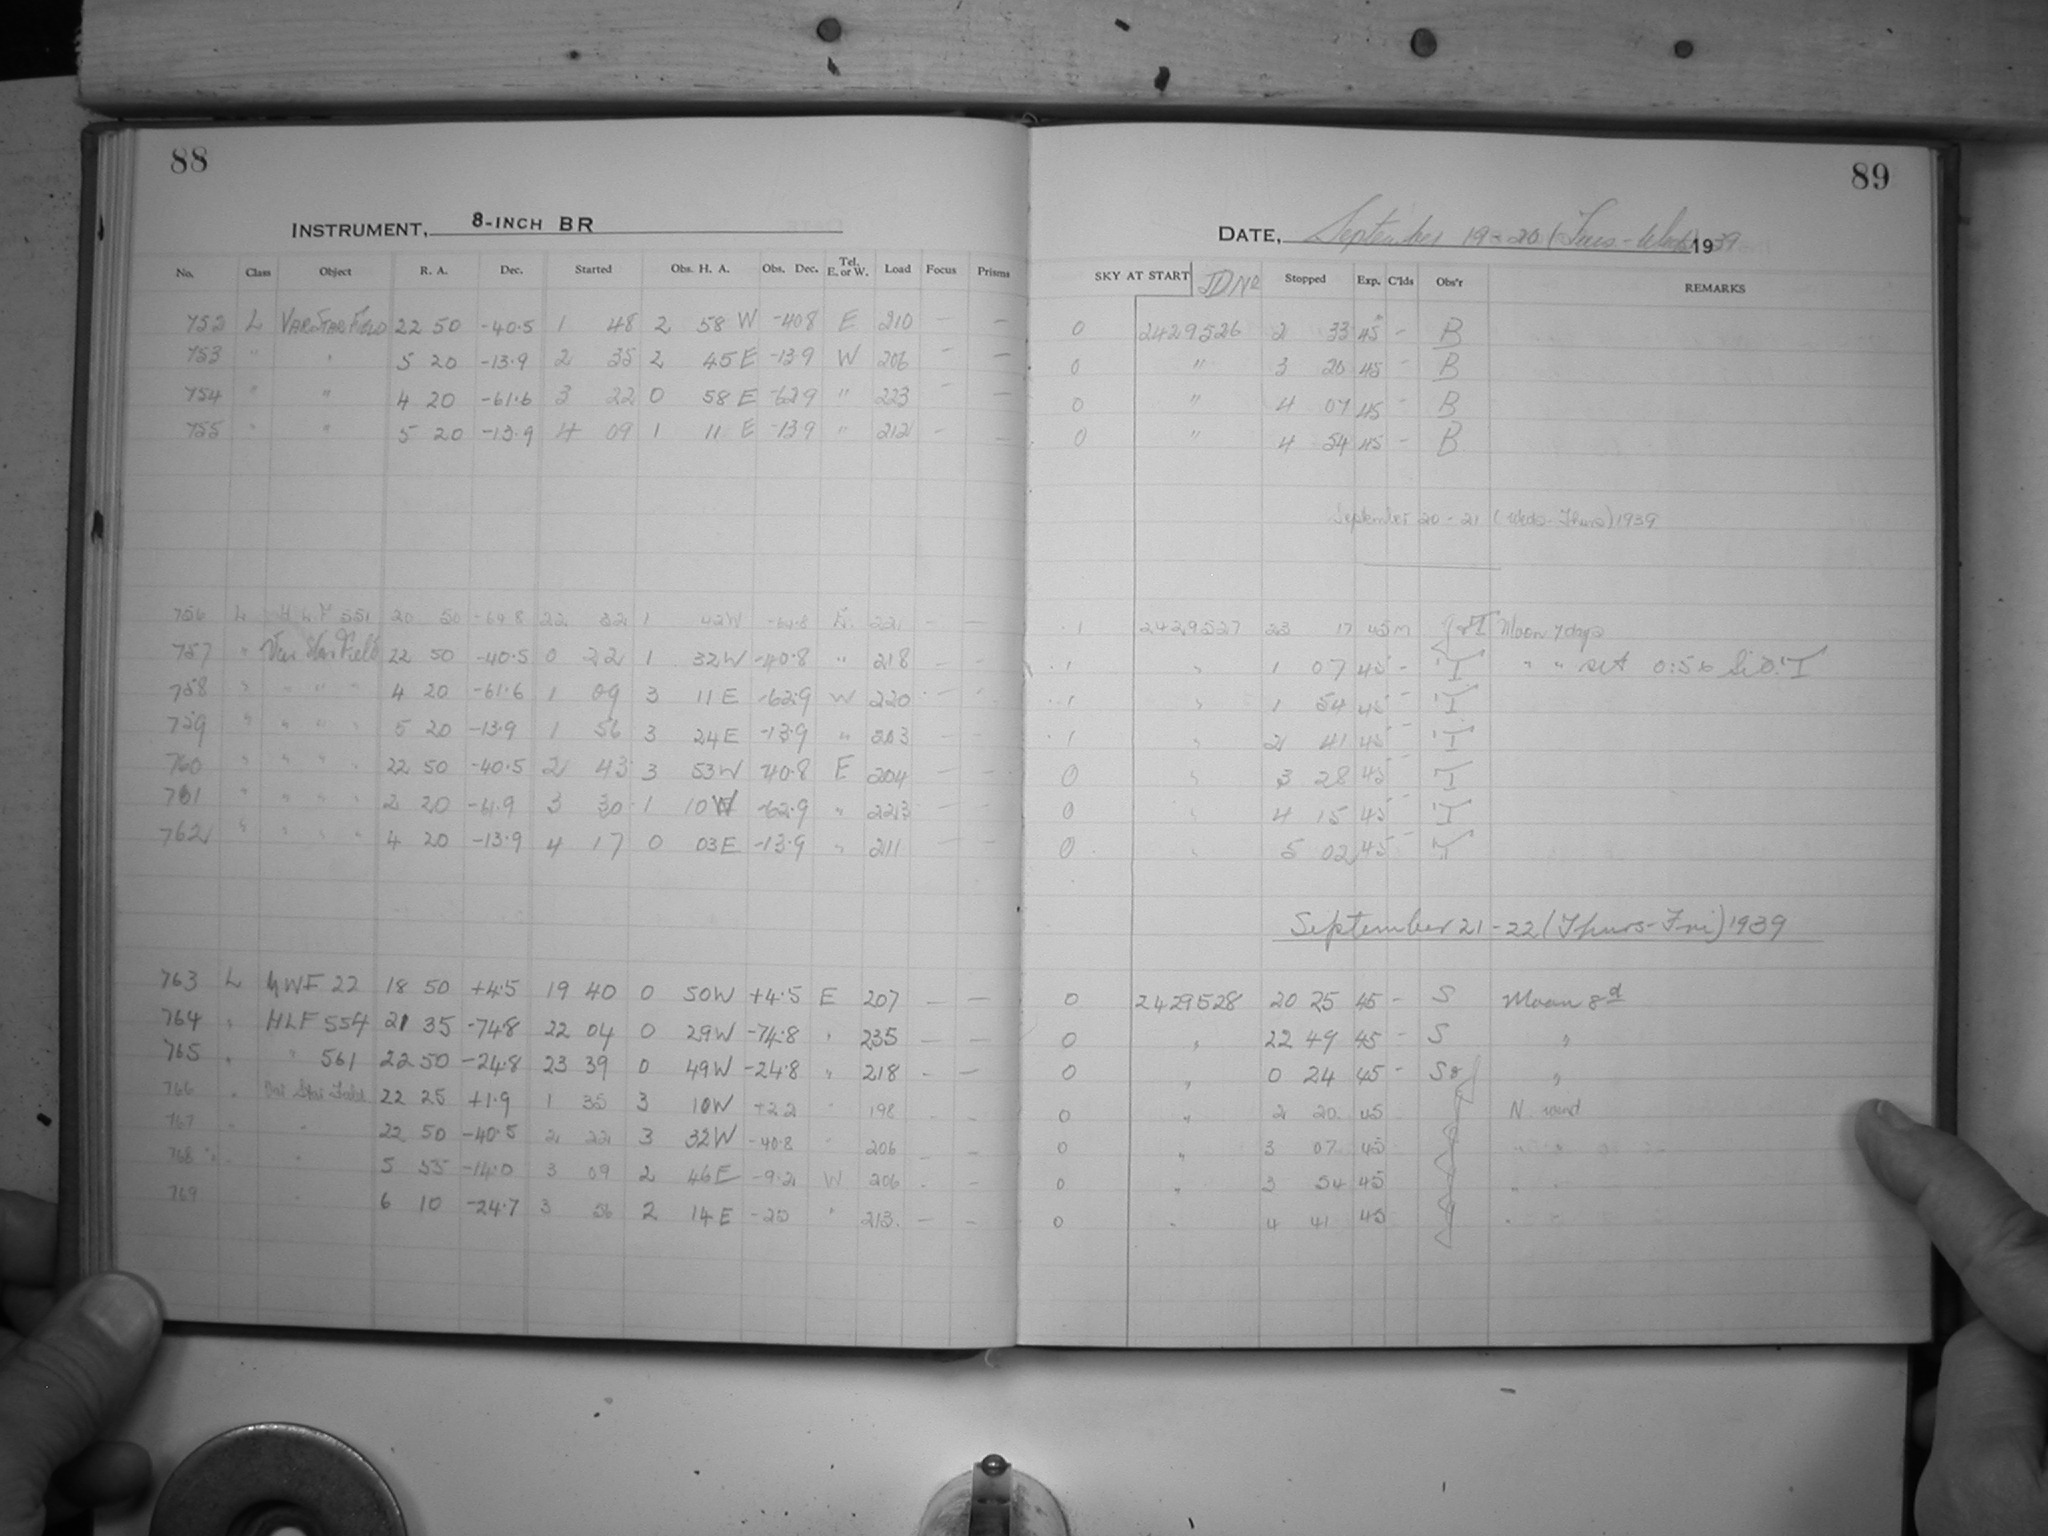 88
INSTRUMENT, 8-INCH BR
No. Class Object R. A. Dec. Started Obs. H. A. Obs. Dec. Tel. E. or W. Load Focus Prisms
752 L VAR STAR FIELD 22 50 -40.5 1 48 2 58 W -40.8 E 210 - -
753 " " 5 20 -13.9 2 35 2 45 E -13.9 W 206 - -
754 " " 4 20 -61.6 3 22 0 58 E -62.9 " 223 - -
755 " " 5 20 -13.9 4 09 1 11 E -13.9 " 212 - -
756 L H L F 551 20 50 -64.8 22 32 1 42W -64.8 E. 221 - -
757 " Var Star Field 22 50 -40.5 0 22 1 32W -40.8 " 218 - -
758 " " " " 4 20 -61.6 1 09 3 11 E -62.9 W 220 - -
759 " " " " 5 20 -13.9 1 56 3 24E -13.9 " 203 - -
760 " " " " 22 50 -40.5 2 43 3 53W -40.8 E 204 - -
761 " " " " 2 20 -61.9 3 30 1 10W -62.9 " 223 - -
762 " " " " 4 20 -13.9 4 17 0 03E -13.9 " 211 - -
763 L MWF 22 18 50 +4.5 19 40 0 50W +4.5 E 207 - -
764 " HLF 554 21 35 -74.8 22 04 0 29W -74.8 " 235 - -
765 " " 561 22 50 -24.8 23 39 0 49W -24.8 " 218 - -
766 " Var Star Field 22 25 +1.9 1 35 3 10W +2.2 " 198 - -
767 " " 22 50 -40.5 2 22 3 32W -40.8 " 206 - -
768 " " 5 55 -14.0 3 09 2 46E -9.2 W 206 - -
769 " 6 10 -24.7 3 56 2 14E -25 " 213. - -
89
DATE, September 19-20 (Tues-Wed) 1939
SKY AT START JD No Stopped Exp. C'lds Obs'r REMARKS
0 2429526 2 33 45 - B
0 " 3 20 45 - B
0 " 4 07 45 - B
0 " 4 54 45 - B
September 20-21 (Weds-Thurs) 1939
1 2429527 23 17 45m Moon 7 days
1 1 07 45 - T " " set 0:56
1 " 1 54 45 - T
1 " 2 41 45 - T
0 " 3 28 45 - T
0 " 4 15 45 - T
0 " 5 02 45 - T
September 21-22 (Thurs-Fri) 1939
0 2429528 20 25 45 - S Moon 8d
0 " 22 49 45 - S "
0 " 0 24 45 - S & J "
0 " 2 20 45 J N. wind
0 " 3 07 45 J " "
0 " 3 54 45 J " "
0 " 4 41 45 J " "